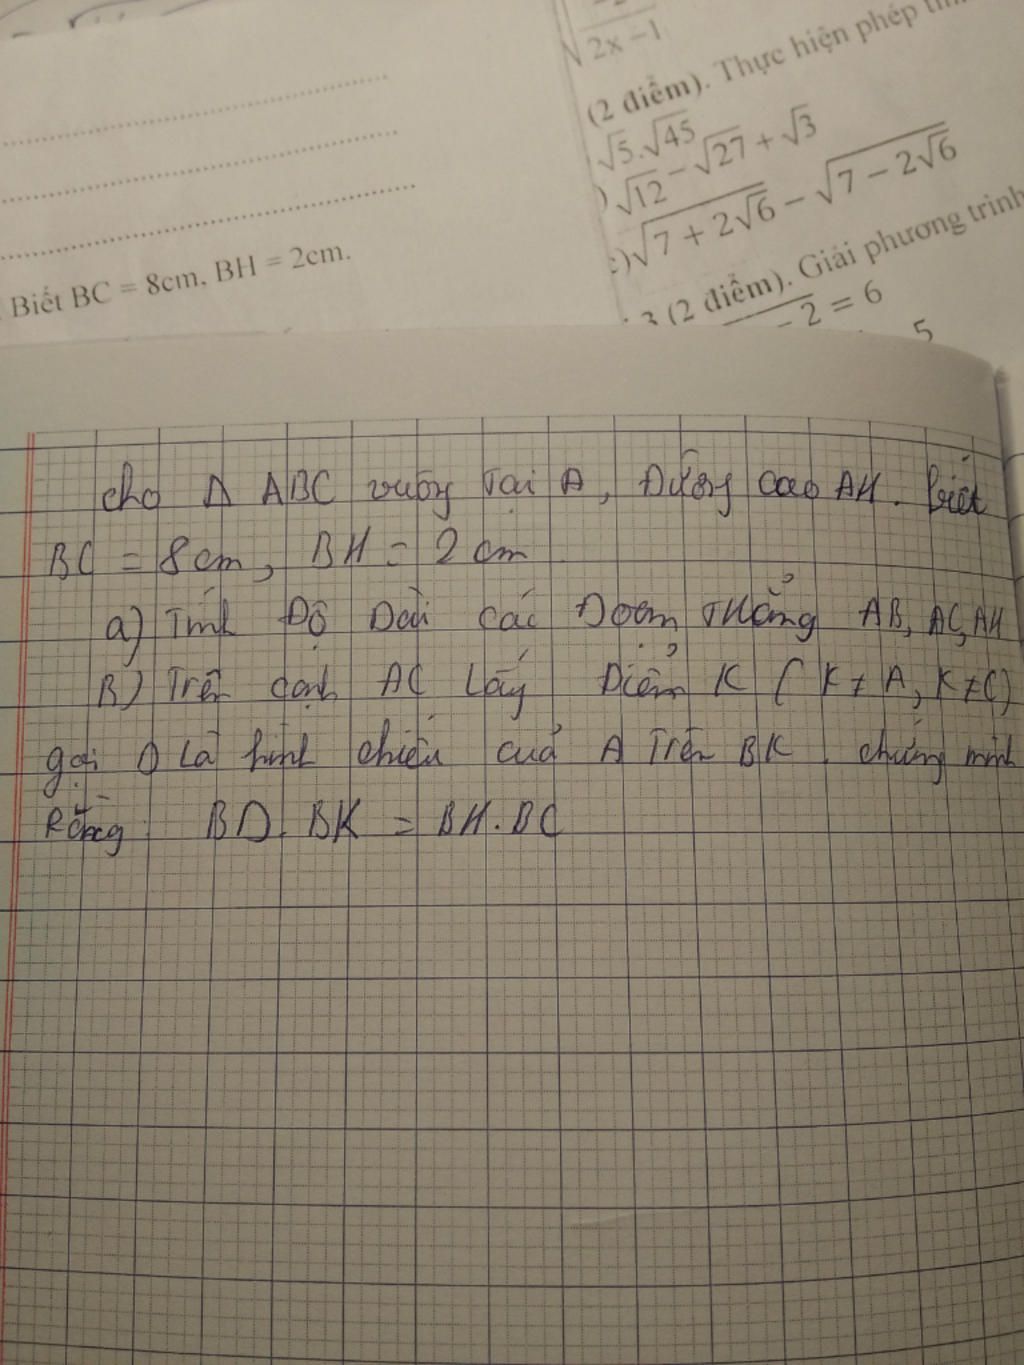 2x − 1
(2 điểm). Thực hiện phép
√5.√45
)√12 − √27 + √3
c)√7 + 2√6 − √7 − 2√6
3 (2 điểm). Giải phương trình
− 2 = 6
5
Biết BC = 8cm, BH = 2cm.
Cho Δ ABC vuông Tại A, Đường cao AH. biết
BC = 8 cm, BH = 2 cm
a) Tính Độ Dài các Đoạn Thẳng AB, AC, AH
B) Trên cạnh AC Lấy Điểm K ( K ≠ A, K ≠ C)
gọi D Là hình chiếu cuả A Trên BK. chứng minh
Rằng: BD. BK = BH. BC